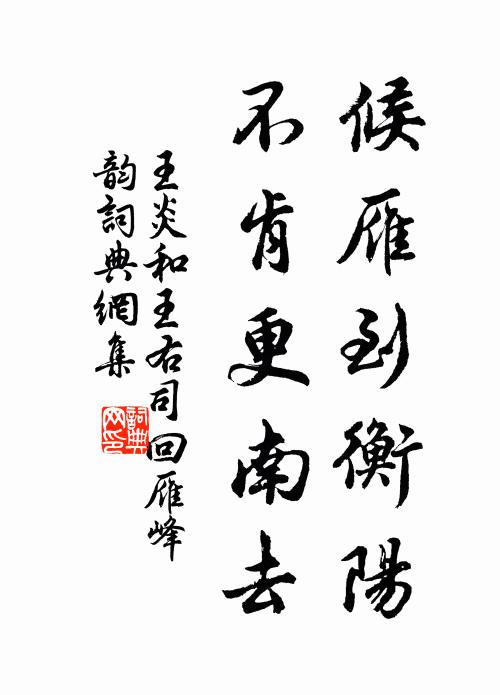 候雁到衡陽
不肯更南去
王炎和王右司回雁峰
韵詞典網集
詞典
网印